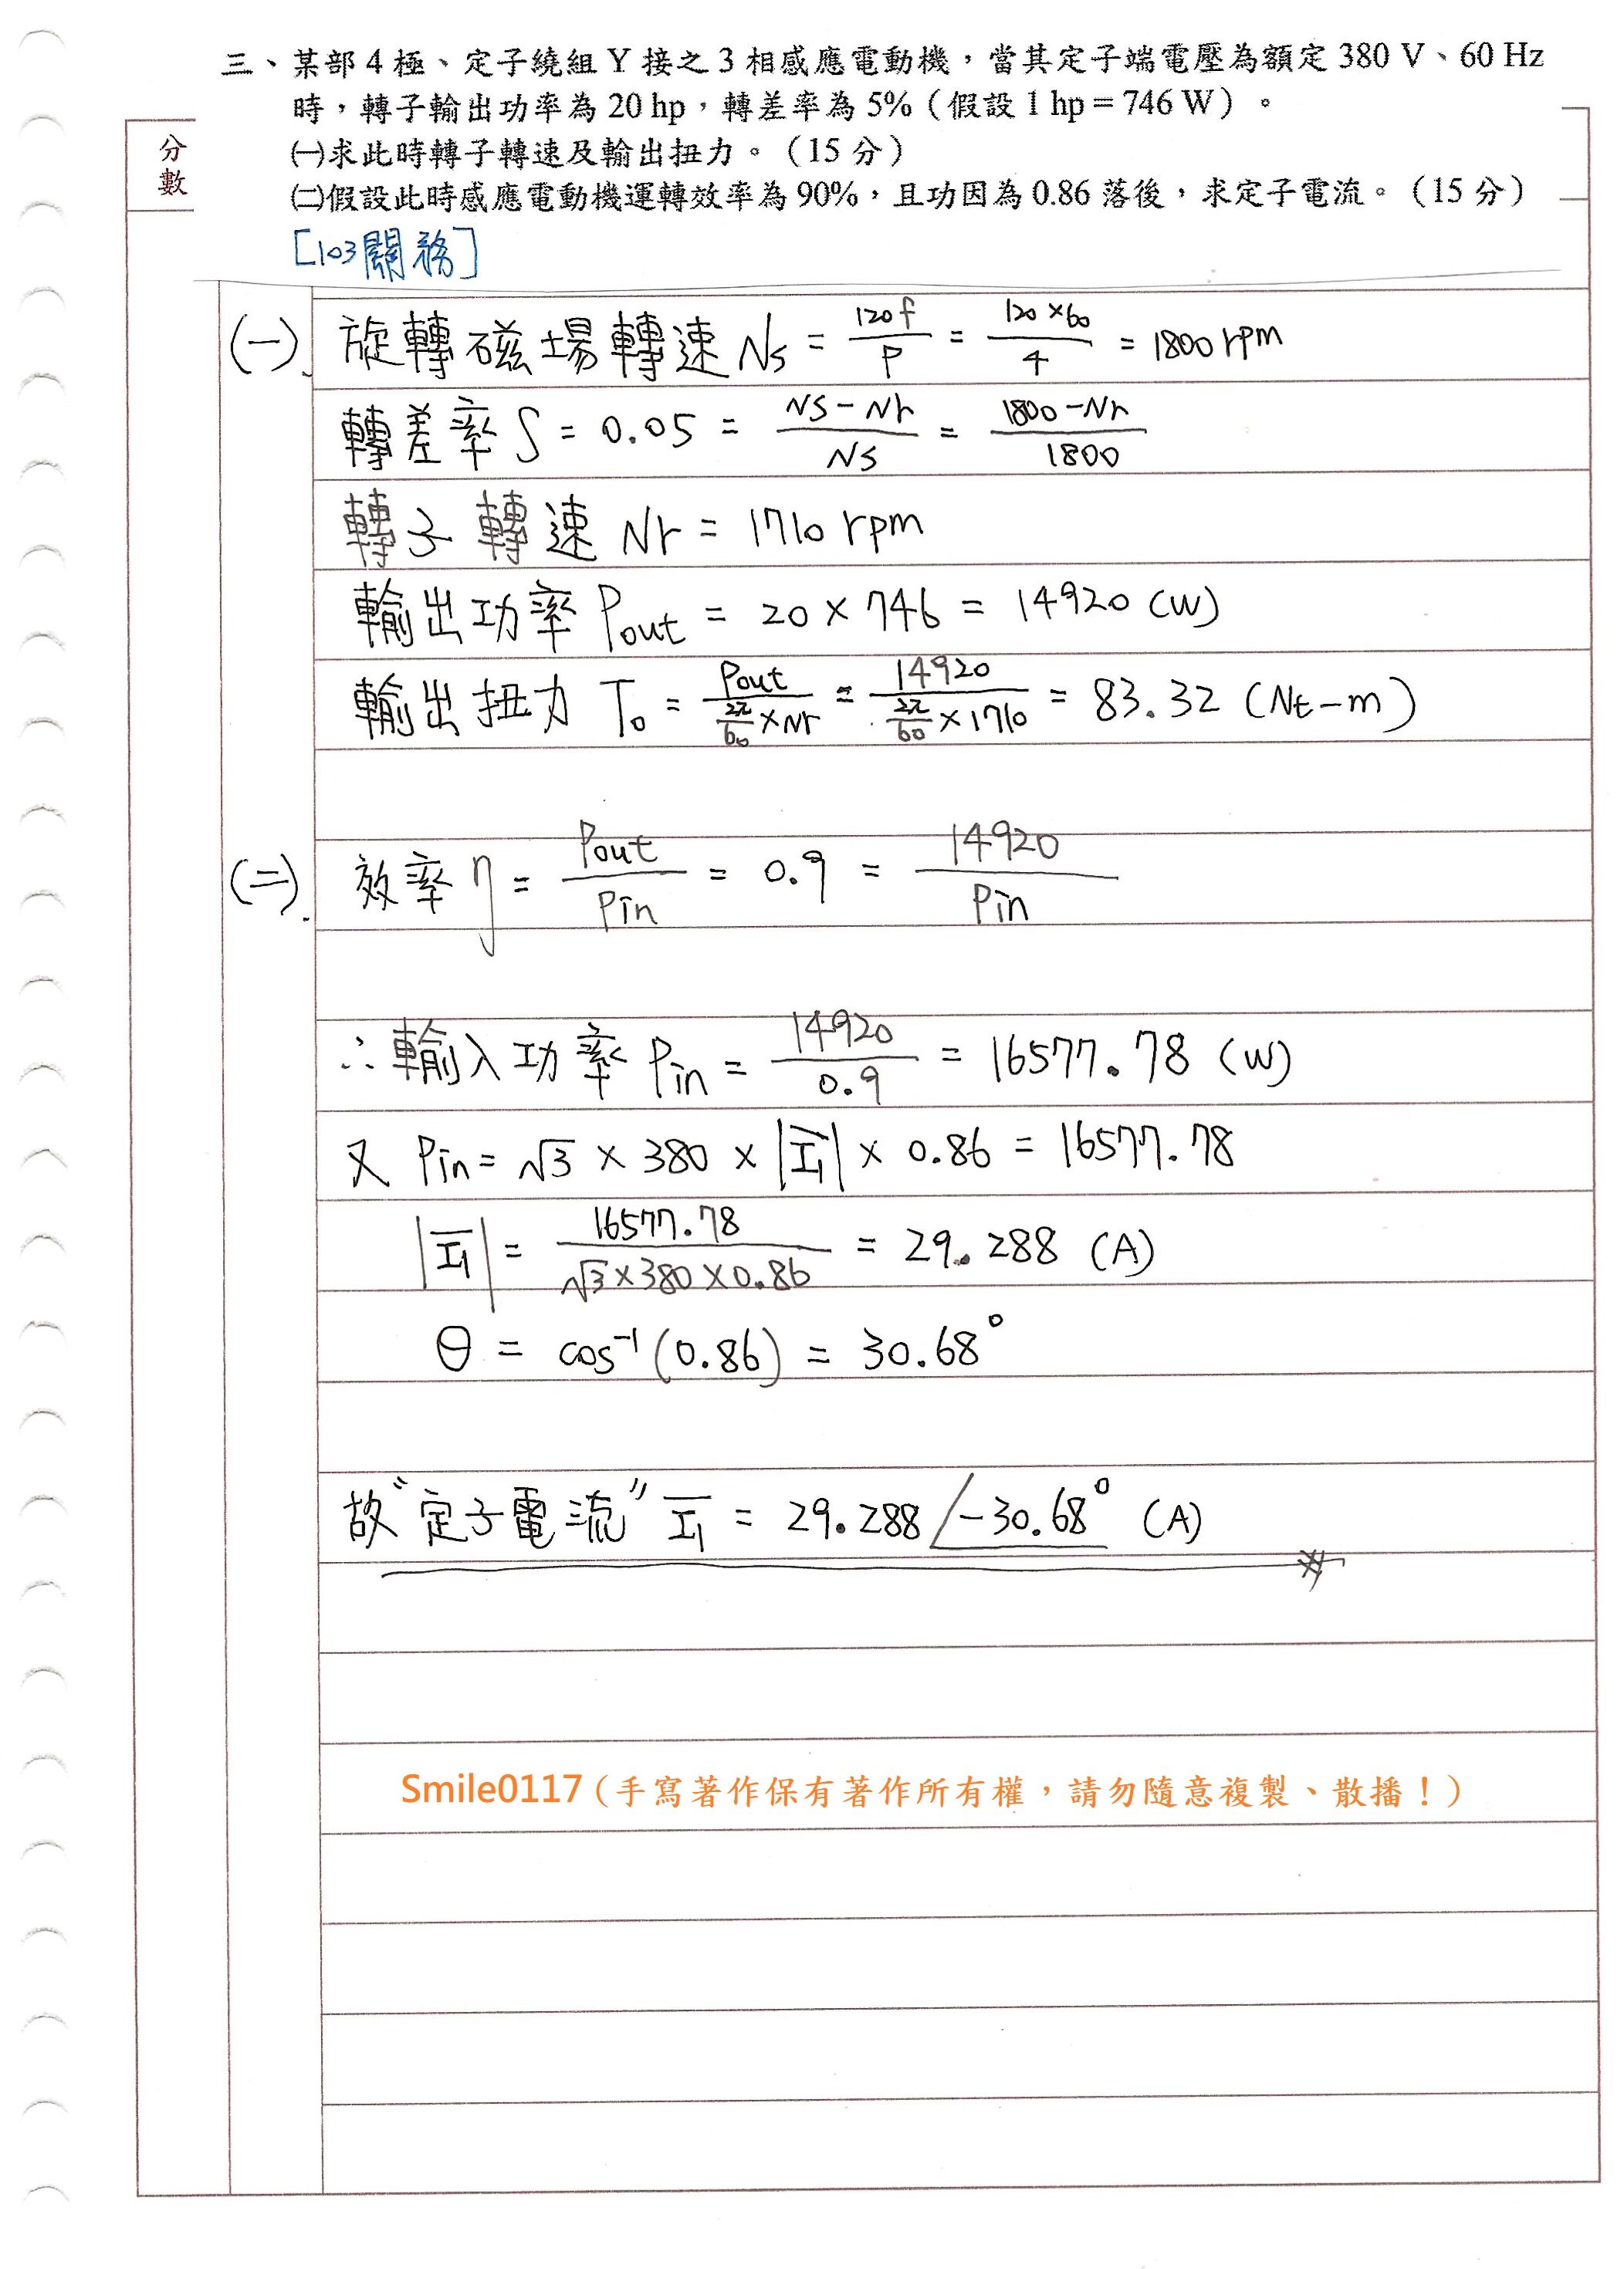 三、某部 4 極、定子繞組 Y 接之 3 相感應電動機，當其定子端電壓為額定 380 V、60 Hz
時，轉子輸出功率為 20 hp，轉差率為 5%（假設 1 hp = 746 W）。
㈠求此時轉子轉速及輸出扭力。（15 分）
㈡假設此時感應電動機運轉效率為 90%，且功因為 0.86 落後，求定子電流。（15 分）
[103關務]
分數
(一). 旋轉磁場轉速 Ns = 120f/P = 120×60/4 = 1800 rpm
轉差率 S = 0.05 = Ns-Nr/Ns = 1800-Nr/1800
轉子轉速 Nr = 1710 rpm
輸出功率 Pout = 20 × 746 = 14920 (W)
輸出扭力 To = Pout/(2π/60 × Nr) = 14920/(2π/60 × 1710) = 83.32 (Nt-m)
(二). 效率 η = Pout/Pin = 0.9 = 14920/Pin
∴輸入功率 Pin = 14920/0.9 = 16577.78 (W)
又 Pin = √3 × 380 × |I̅₁| × 0.86 = 16577.78
|I̅₁| = 16577.78/(√3×380×0.86) = 29.288 (A)
θ = cos⁻¹(0.86) = 30.68°
故"定子電流" I̅₁ = 29.288∠-30.68° (A)
Smile0117（手寫著作保有著作所有權，請勿隨意複製、散播！）